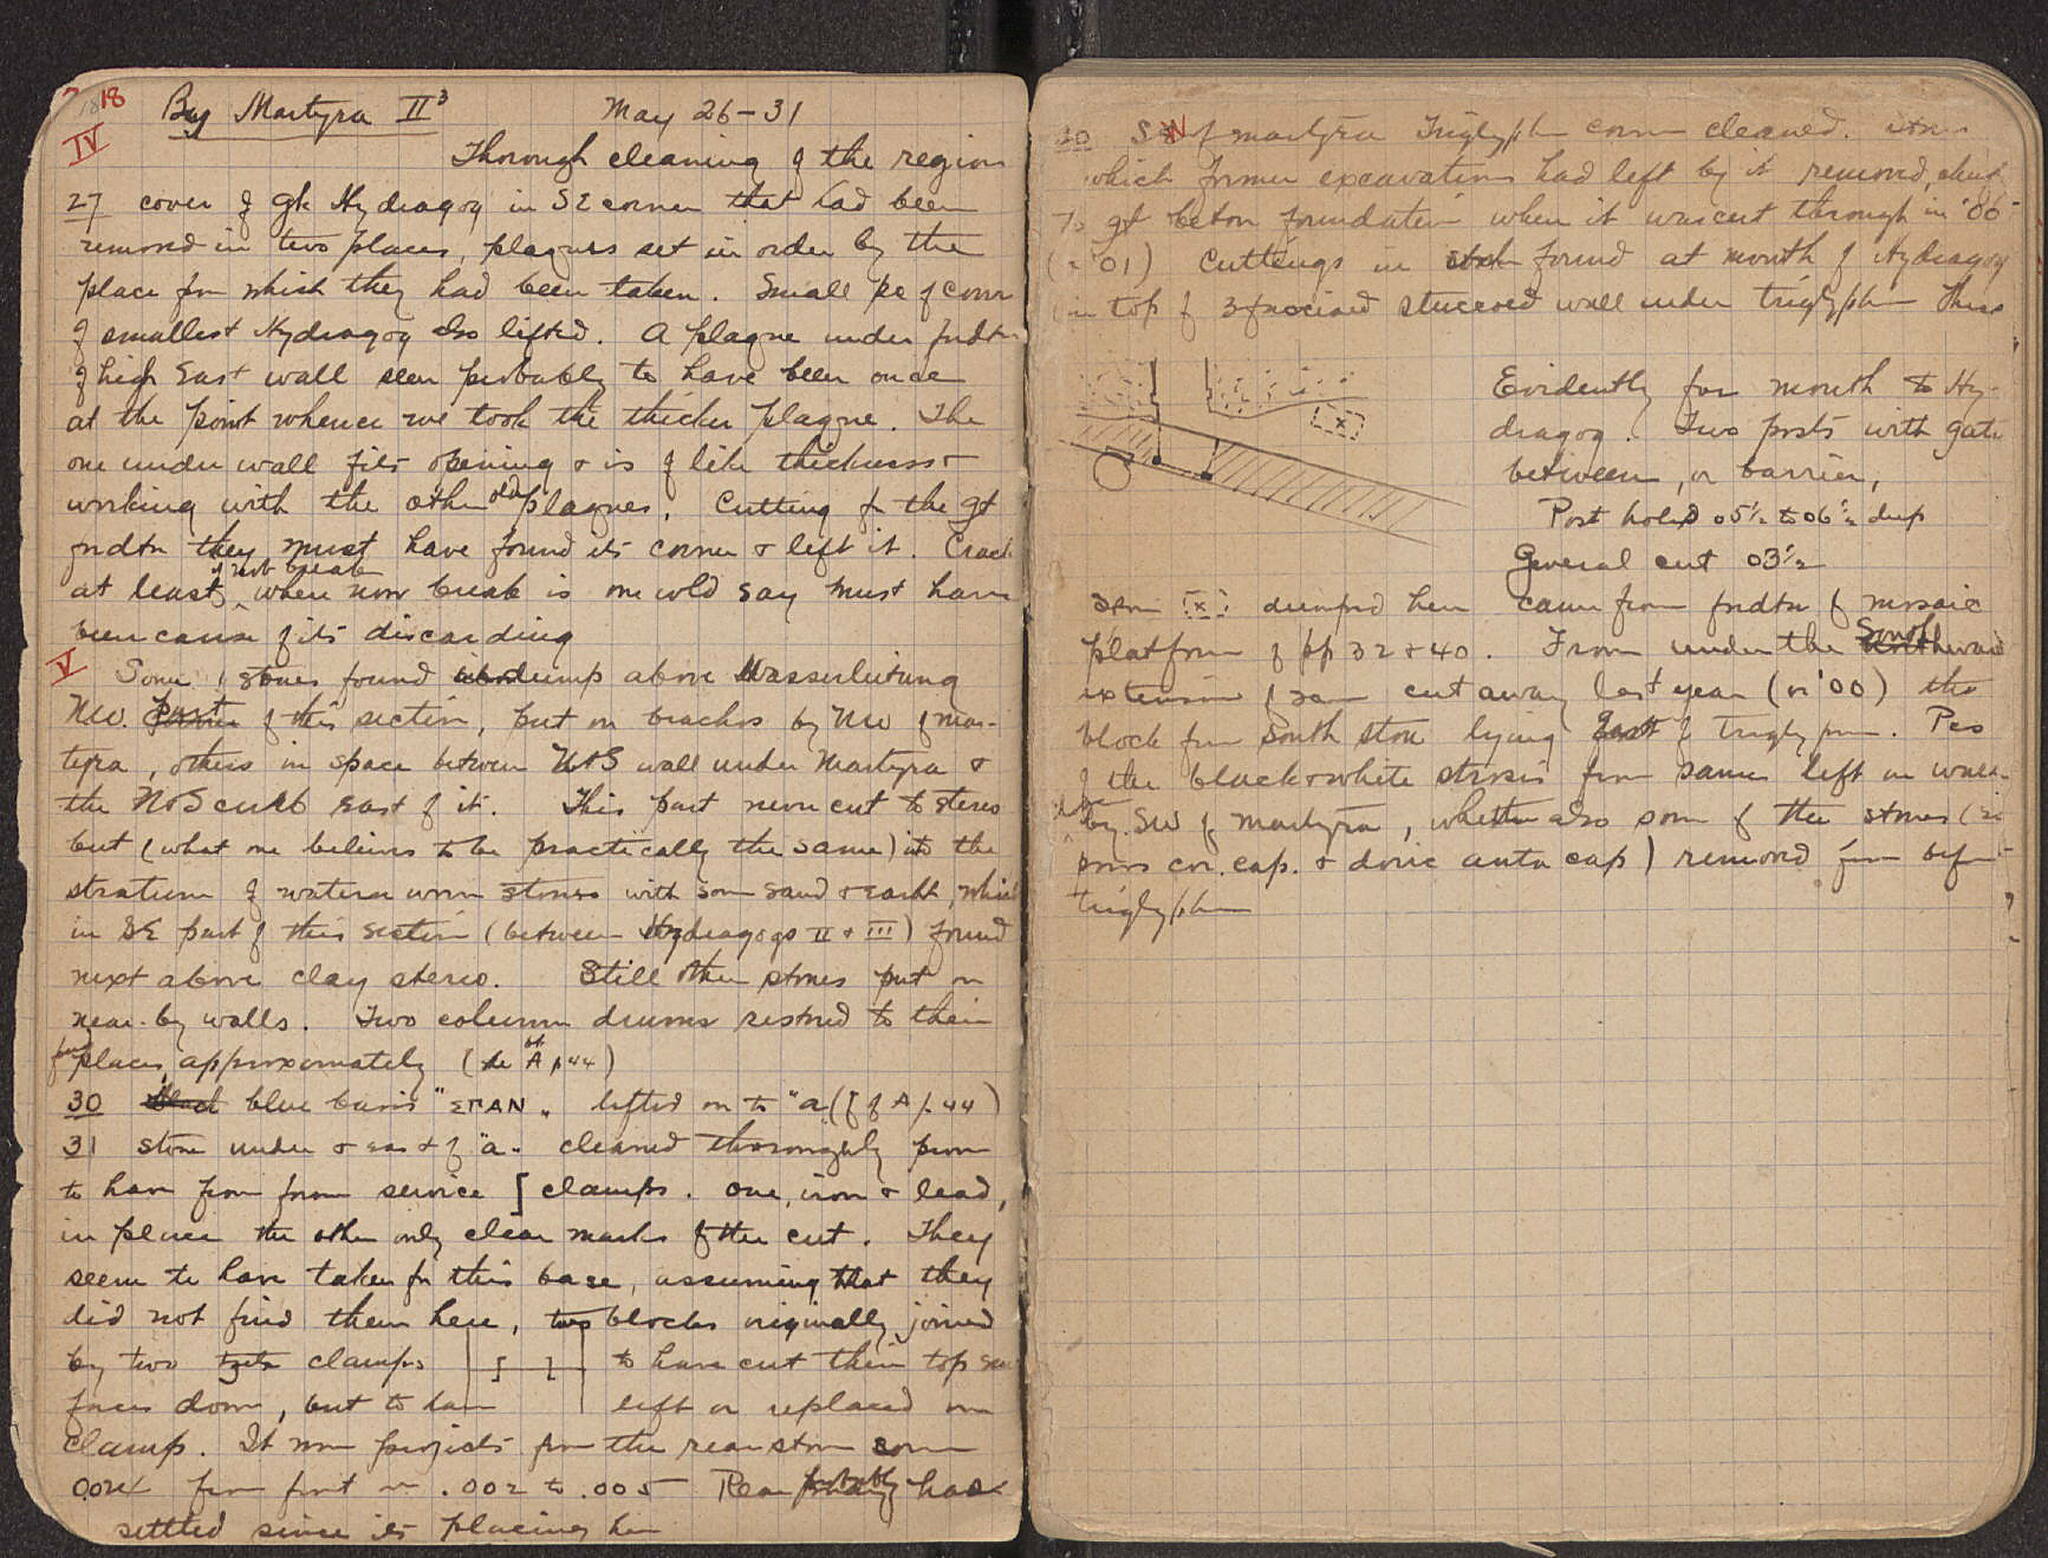 18 18 By Martyra II³ May 26-31
IV
Thorough cleaning of the region
27 cover of gk Hydragog in SE corner that had been
removed in two places, plaques set in order by the
place from which they had been taken. Small pc of cover
of smallest Hydragog also lifted. A plaque under fndtn
of high East wall seen probably to have been once
at the point whence we took the thicker plaque. The
one under wall fits opening & is of like thickness &
working with the other old plaques. Cutting for the gt
fndtn they must have found its corner & left it. Crack
at least, if not break where now break is one wld say must have
been cause of its discarding
V
Some stones found dump above Wasserleitung
NW. Part of this section, put on beaches by NW of mar-
tyra, others in space between N&S wall under Martyra &
the N&S curb east of it. This part never cut to stereo
but (what one believes to be practically the same) into the
stratum of water worn stones with some sand & earth, which
in SE part of this section (between Hydragogs II & III) found
next above clay stereo. Still other stones put on
near-by walls. Two column drums restored to their
places, approximately ( A p 44)
30 blue basis "ΣΠΑΝ" lifted on to "a" ([ of A p. 44)
31 stone under & east of "a" cleaned thoroughly prove
to have from former service [ clamps. One, iron & lead,
in place the other only clear marks of the cut. They
seem to have taken for this base, assuming that they
did not find them here, two blocks originally joined
by two clamps to have cut their top sur
faces down, but to have left or replaced one
clamp. It now projects from the rear stone some
0.024 from front on .002 to .005 Rear probably has
settled since its placing here
30 SW of martyra Triglyphon corner cleaned. stones
which former excavations had left by it removed,
to gt beton foundation when it was cut through in '00
('01) Cuttings in found at mouth of Hydragog
in top of stuccoed wall under triglyphon These
x
Evidently for mouth to Hy-
dragog. Two posts with gate
between, or barrier,
Post holes 05½ to 06½ deep
General cut 03½
Stone [x] dumped here came from fndtn of mosaic
platform of pp 32 & 40. From under the Southward
extension of same cut away last year (or '00) the
block from South stoa lying East of triglyphon. Pcs
of the black & white stones from same left on wall
by SW of martyra, whether also some of the stones (
cor. cap. & doric anta cap) removed from before
triglyphon